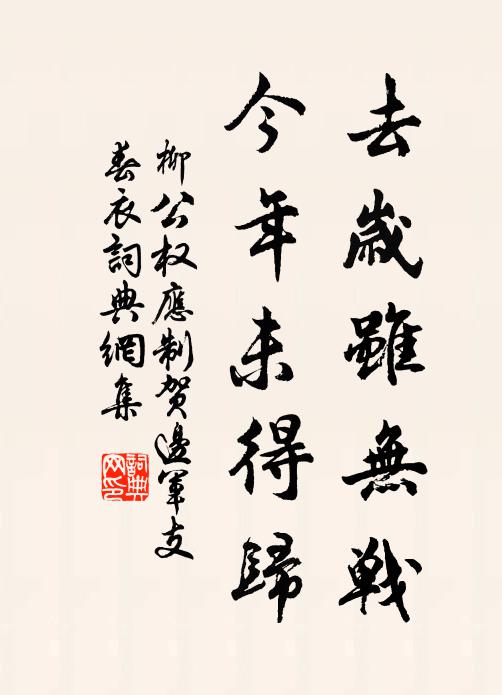 去歲雖無戰
今年未得歸
柳公权應制贺邊軍支
春衣詞典網集
詞典网印